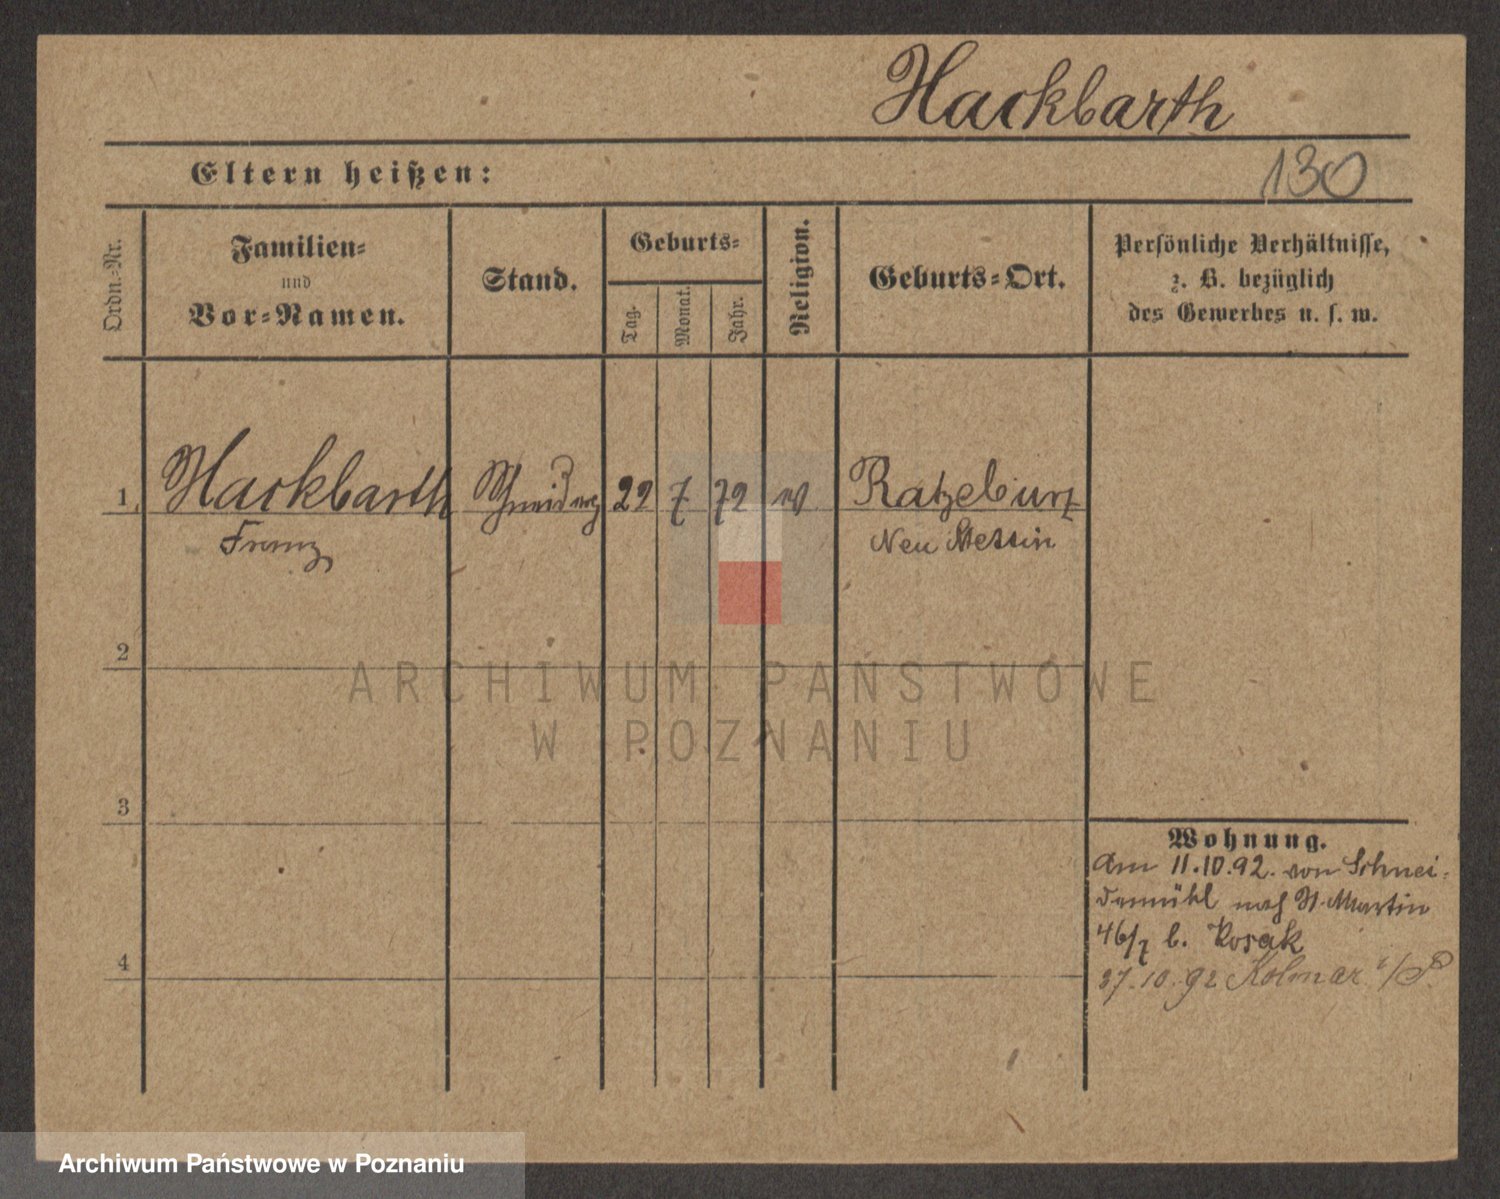 Hackbarth
Eltern heißen:
130
Ordn.-Nr.
Familien-
und
Vor-Namen.
Stand.
Geburts-
Tag.
Monat.
Jahr.
Religion.
Geburts-Ort.
Persönliche Verhältnisse,
z. B. bezüglich
des Gewerbes u. s. w.
1. Hackbarth 22 7 72 Ratzeburg
Franz Neu Stettin
2
3
4
Wohnung.
Am 11.10.92. von Schnei-
demühl nach St. Martin
46/7 b. Kosak
27.10.92 Kolmar i/P.
ARCHIWUM PAŃSTWOWE
W POZNANIU
Archiwum Państwowe w Poznaniu